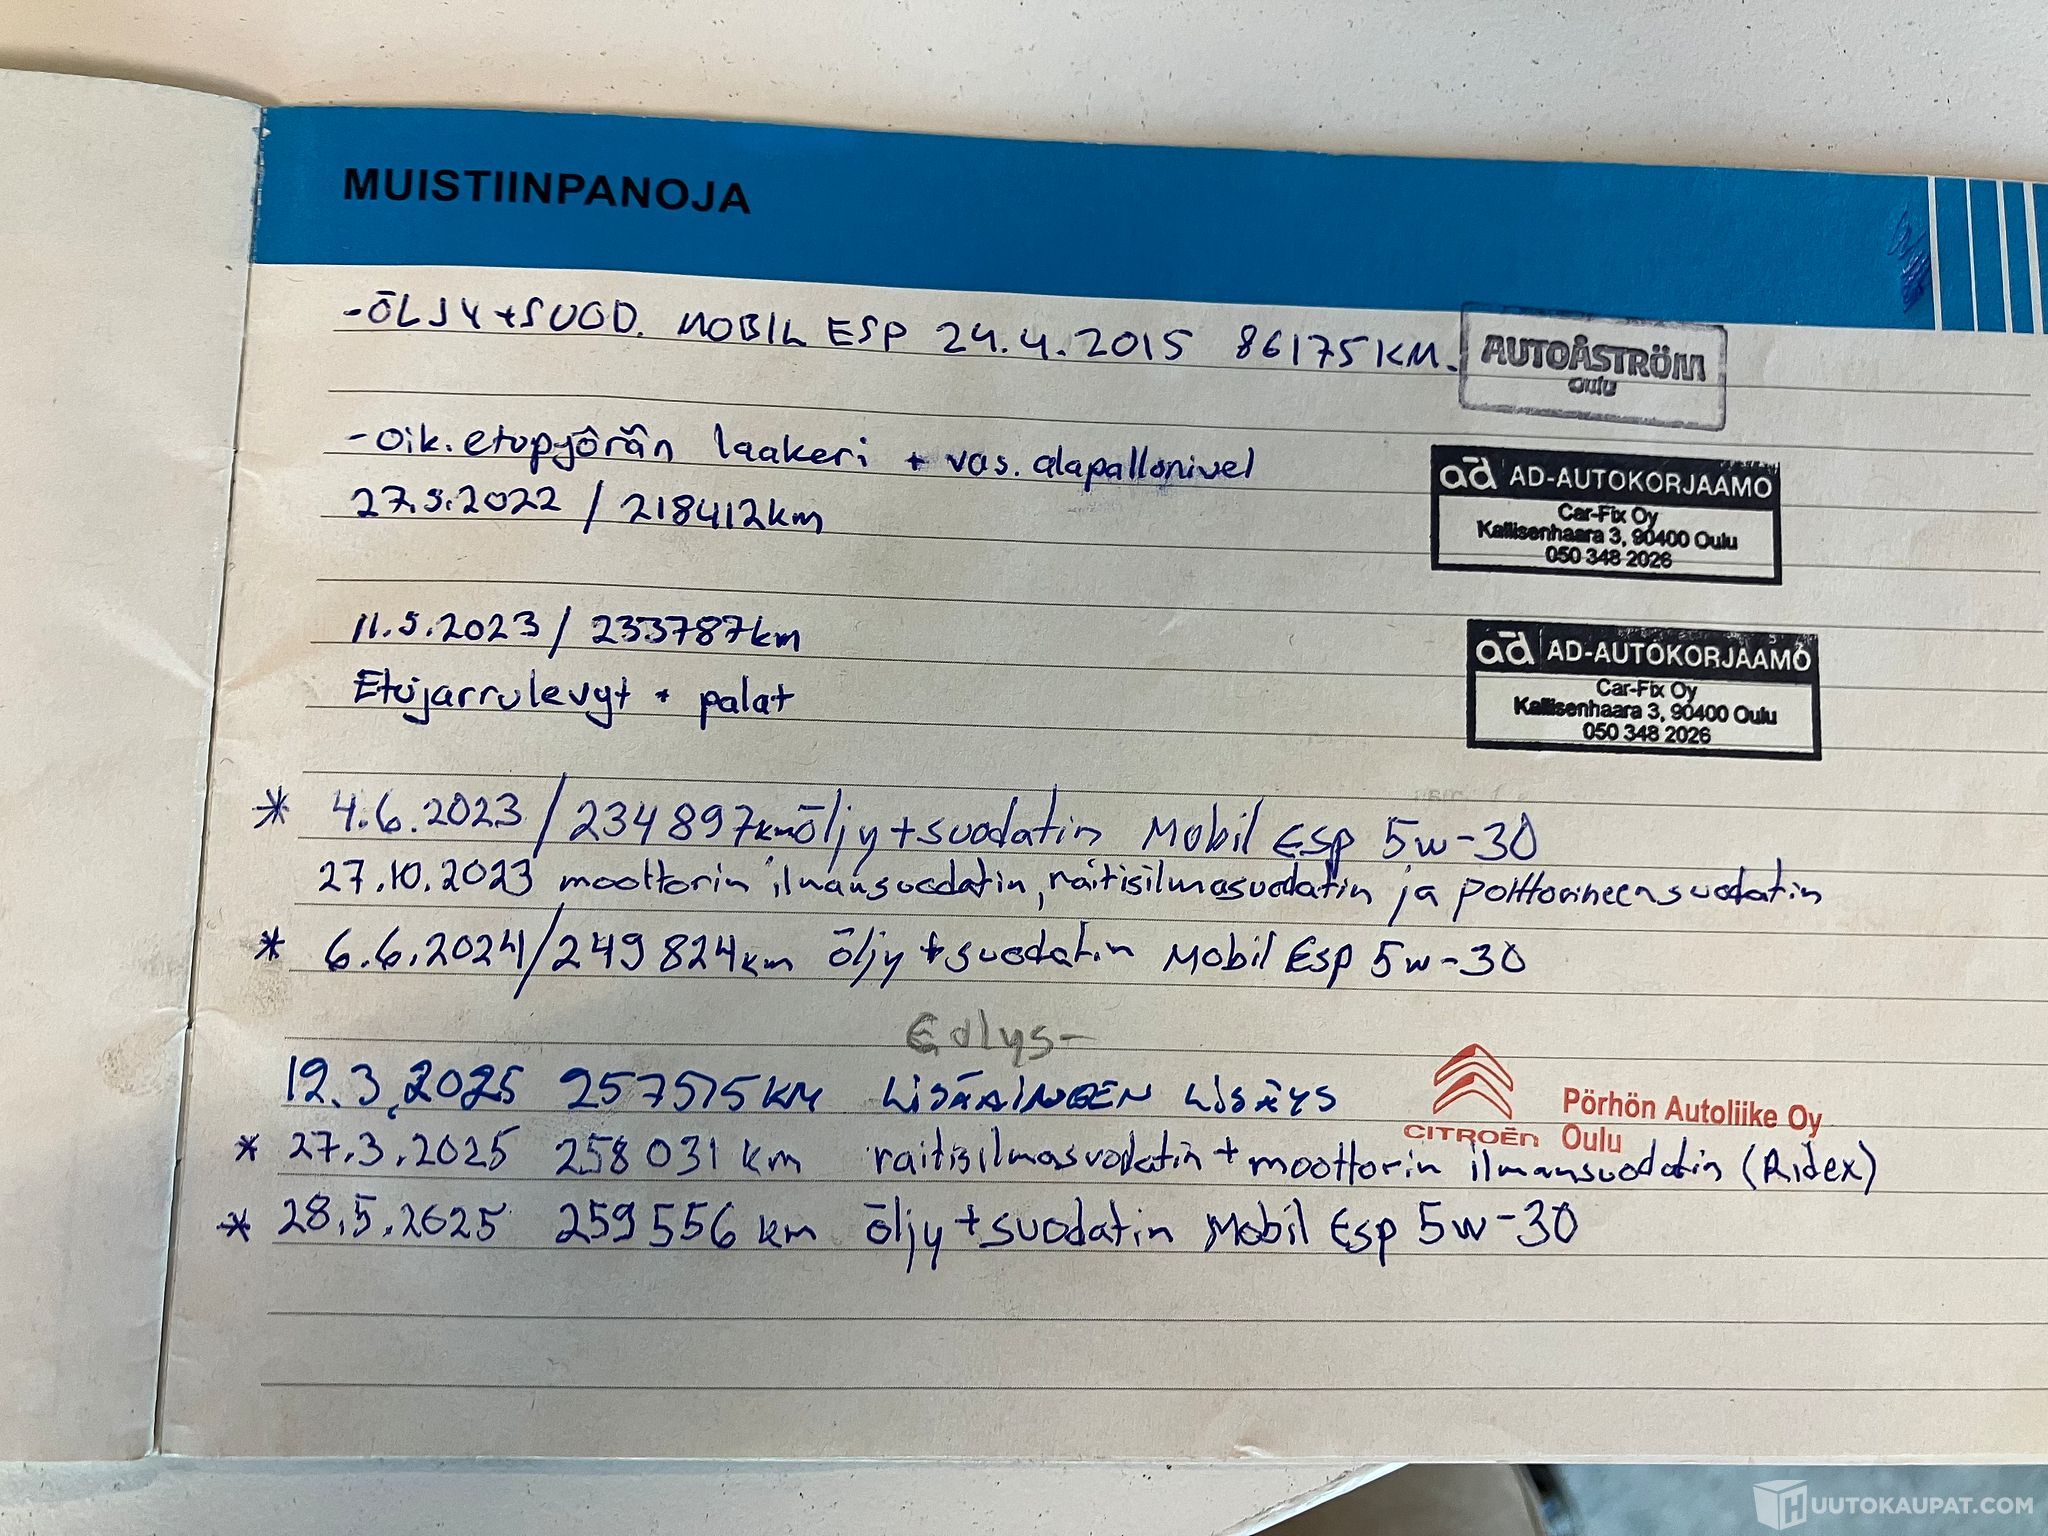 MUISTIINPANOJA
-ÖLJY+SUOD. MOBIL ESP 24.4.2015 86175KM.
AUTOÅSTRÖM
Oulu
-oik.etupyörän laakeri + vas. alapallonivel
27.5.2022 / 218412km
ad AD-AUTOKORJAAMO
Car-Fix Oy
Kallisenhaara 3, 90400 Oulu
050 348 2026
11.5.2023 / 233787km
Etujarrulevyt + palat
ad AD-AUTOKORJAAMO
Car-Fix Oy
Kallisenhaara 3, 90400 Oulu
050 348 2026
* 4.6.2023 / 234897km öljy+suodatin Mobil Esp 5w-30
27.10.2023 moottorin ilmansuodatin, raitisilmasuodatin ja polttoaineensuodatin
* 6.6.2024 / 249824km öljy+suodatin Mobil Esp 5w-30
12.3.2025 257575KM LISÄAINEEN LISÄYS
CITROËN Pörhön Autoliike Oy
Oulu
* 27.3.2025 258031 km raitisilmasuodatin + moottorin ilmansuodatin (Ridex)
* 28.5.2025 259556 km öljy+suodatin Mobil Esp 5w-30
HUUTOKAUPAT.COM